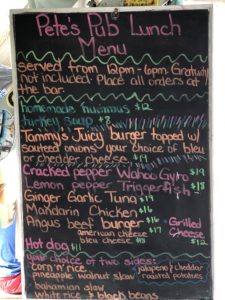 Pete's Pub Lunch
Menu
served from 12pm-6pm. Gratuity
not included. Place all orders at
the bar.
homemade hummus $12
turkey soup $8
Tammy's Juicy burger topped w/
sauteed onions your choice of bleu
or chedder cheese. $19
Cracked pepper Wahoo Gyro $19
Lemon pepper Triggerfish $18
Ginger Garlic Tuna $19
Mandarin Chicken $16
Angus beef burger $16
american cheese $17
bleu cheese $18
Grilled
Cheese
$12
Hot dog $11
your choice of two sides:
corn'n'rice
pineapple walnut slaw
bahamian slaw
white rice & black beans
jalapeno & cheddar
roasted potatoes